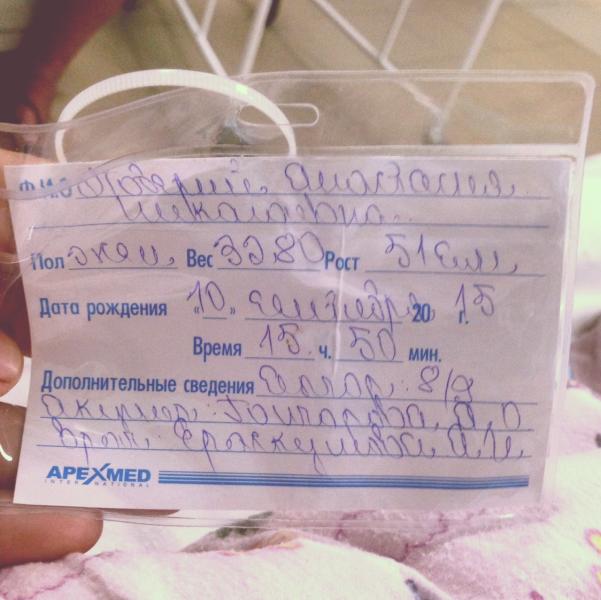 Ф.И.О. Анастасия
Николаевна
Пол жен. Вес 3280 Рост 51 см.
Дата рождения "10" сентября 2015 г.
Время 15 ч. 50 мин.
Дополнительные сведения Апгар: 8/9
Акушер: Гончарова
Врач:
APEXMED
INTERNATIONAL